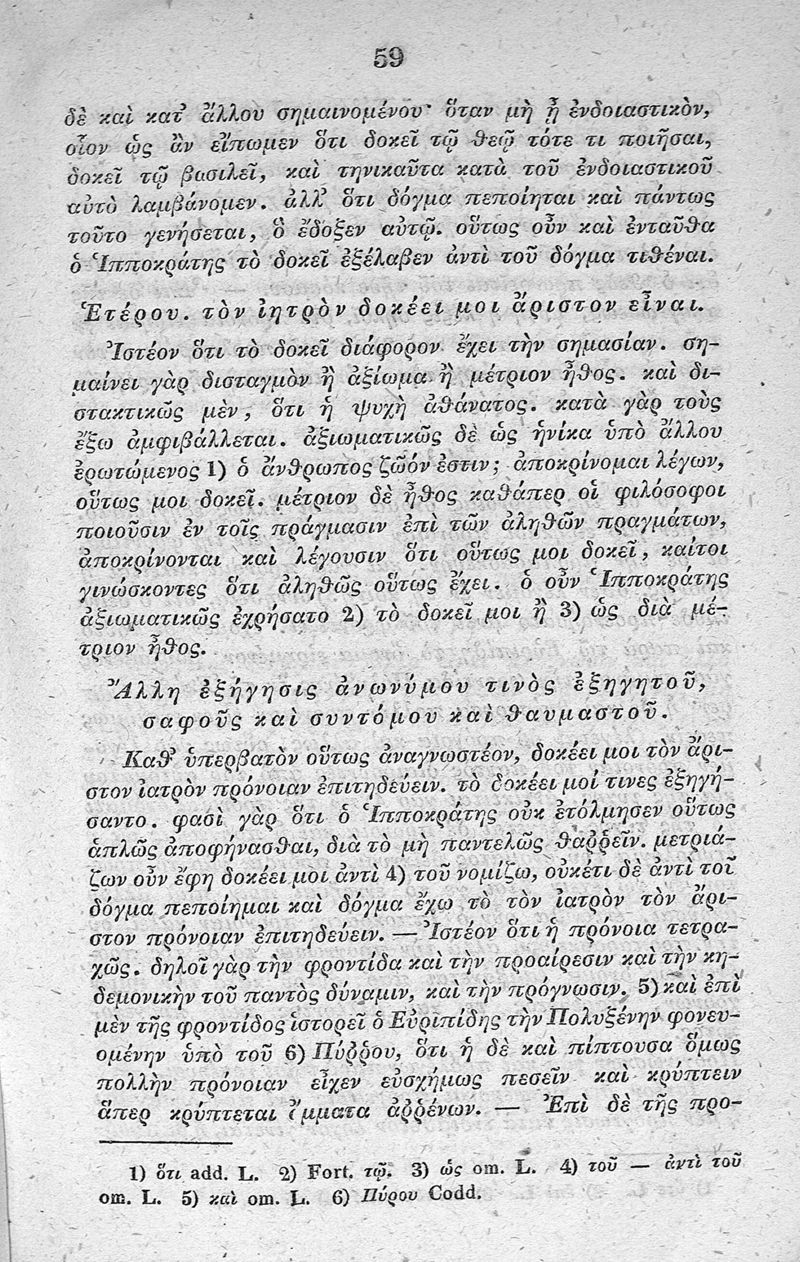 59
δὲ καὶ κατ̓ ἄλλου σημαινομένου· ὅταν μὴ ᾖ ἐνδοιαστικὸν,
οἷον ὡς ἂν εἴπωμεν ὅτι δοκεῖ τῷ θεῷ τότε τι ποιῆσαι,
δοκεῖ τῷ βασιλεῖ, καὶ τηνικαῦτα κατὰ τοῦ ἐνδοιαστικοῦ
αὐτὸ λαμβάνομεν. ἀλλ̓ ὅτι δόγμα πεποίηται καὶ πάντως
τοῦτο γενήσεται, ὃ ἔδοξεν αὐτῷ. οὕτως οὖν καὶ ἐνταῦθα
ὁ Ἱπποκράτης τὸ δοκεῖ ἐξέλαβεν ἀντὶ τοῦ δόγμα τιθέναι.
Ἑτέρου. τὸν ἰητρὸν δοκέει μοι ἄριστον εἶναι.
Ἰστέον ὅτι τὸ δοκεῖ διάφορον ἔχει τὴν σημασίαν. ση-
μαίνει γὰρ δισταγμὸν ἢ ἀξίωμα ἢ μέτριον ἦθος. καὶ δι-
στακτικῶς μὲν, ὅτι ἡ ψυχὴ ἀθάνατος. κατὰ γὰρ τοὺς
ἔξω ἀμφιβάλλεται. ἀξιωματικῶς δὲ ὡς ἡνίκα ὑπὸ ἄλλου
ἐρωτώμενος 1) ὁ ἄνθρωπος ζῶόν ἐστιν; ἀποκρίνομαι λέγων,
οὕτως μοι δοκεῖ. μέτριον δὲ ἦθος καθάπερ οἱ φιλόσοφοι
ποιοῦσιν ἐν τοῖς πράγμασιν ἐπὶ τῶν ἀληθῶν πραγμάτων,
ἀποκρίνονται καὶ λέγουσιν ὅτι οὕτως μοι δοκεῖ, καίτοι
γινώσκοντες ὅτι ἀληθῶς οὕτως ἔχει. ὁ οὖν Ἱπποκράτης
ἀξιωματικῶς ἐχρήσατο 2) τὸ δοκεῖ μοι ἢ 3) ὡς διὰ μέ-
τριον ἦθος.
Ἄλλη ἐξήγησις ἀνωνύμου τινὸς ἐξηγητοῦ,
σαφοῦς καὶ συντόμου καὶ θαυμαστοῦ.
Καθ̓ ὑπερβατὸν οὕτως ἀναγνωστέον, δοκέει μοι τὸν ἄρι-
στον ἰατρὸν πρόνοιαν ἐπιτηδεύειν. τὸ δοκέει μοί τινες ἐξηγή-
σαντο. φασὶ γὰρ ὅτι ὁ Ἱπποκράτης οὐκ ἐτόλμησεν οὕτως
ἁπλῶς ἀποφήνασθαι, διὰ τὸ μὴ παντελῶς θαῤῥεῖν. μετριά-
ζων οὖν ἔφη δοκέει μοι ἀντὶ 4) τοῦ νομίζω, οὐκέτι δὲ ἀντὶ τοῦ
δόγμα πεποίημαι καὶ δόγμα ἔχω τὸ τὸν ἰατρὸν τὸν ἄρι-
στον πρόνοιαν ἐπιτηδεύειν. — Ἰστέον ὅτι ἡ πρόνοια τετρα-
χῶς. δηλοῖ γὰρ τὴν φροντίδα καὶ τὴν προαίρεσιν καὶ τὴν κη-
δεμονικὴν τοῦ παντὸς δύναμιν, καὶ τὴν πρόγνωσιν, 5) καὶ ἐπὶ
μὲν τῆς φροντίδος ἱστορεῖ ὁ Εὐριπίδης τὴν Πολυξένην φονευ-
ομένην ὑπὸ τοῦ 6) Πύῤῥου, ὅτι ἡ δὲ καὶ πίπτουσα ὅμως
πολλὴν πρόνοιαν εἶχεν εὐσχήμως πεσεῖν καὶ κρύπτειν
ἅπερ κρύπτεται ὄμματα ἀῤῥένων. — Ἐπὶ δὲ τῆς προ-
1) ὅτι add. L. 2) Fort. τῷ. 3) ὡς om. L. 4) τοῦ — ἀντὶ τοῦ
om. L. 5) καὶ om. L. 6) Πύρου Codd.